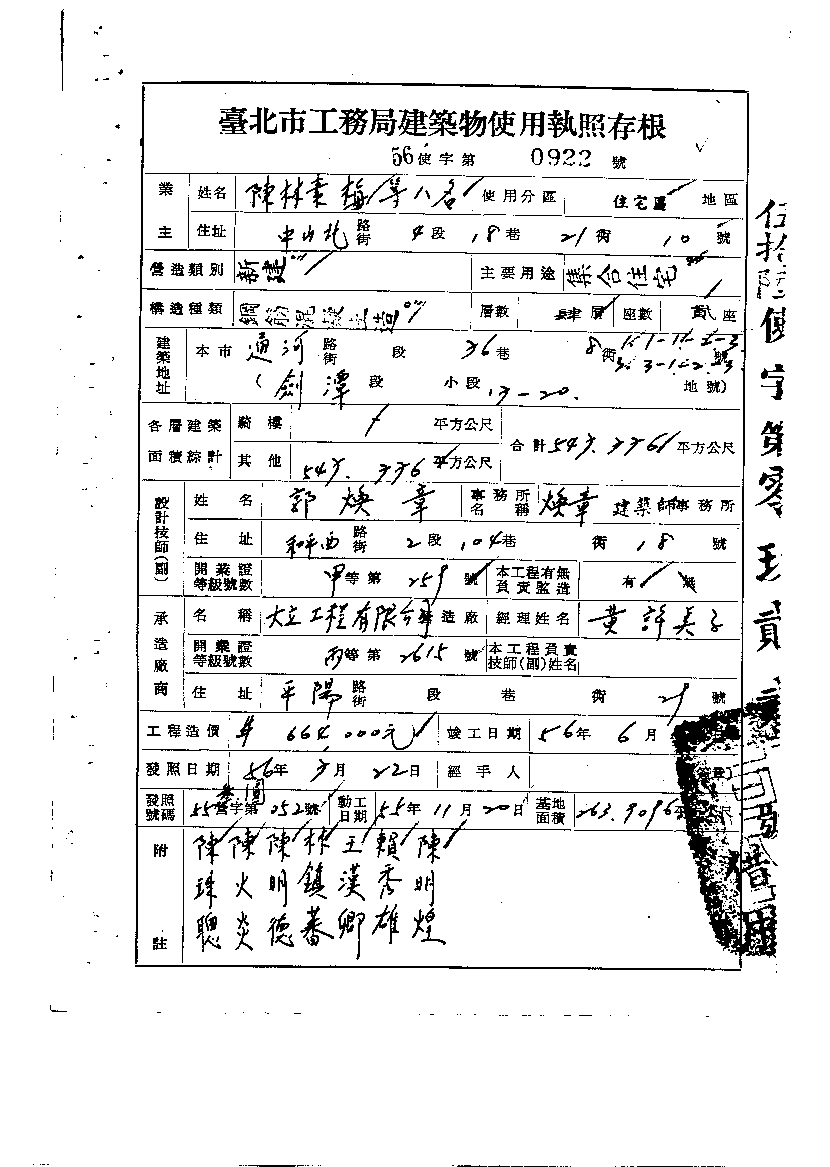 臺北市工務局建築物使用執照存根
56使字第 0922 號
業主 姓名 陳林素梅等八名 使用分區 住宅區 地區
住址 中山北 路街 4段 18巷 21衖 10號
營造類別 新建 主要用途 集合住宅
構造種類 鋼筋混凝土造 層數 肆層 座數 貳座
建築地址 本市 通河 路街 段 36巷 8衖 號
(劍潭 段 小段 13-20. 地號)
各層建築面積綜計 騎樓 平方公尺 合計 平方公尺
其他 平方公尺
設計技師(副) 姓名 郭煥章 事務所名稱 煥章建築師事務所
住址 和平西 路街 2段 104巷 衖 18 號
開業證等級號數 甲等第 259 號 本工程有無負責監造 有 無
承造廠商 名稱 大立工程有限公司 營造廠 經理姓名 黃許美子
開業證等級號數 丙等第 2615 號 本工程負責技師(副)姓名
住址 平陽 路街 段 巷 衖 21 號
工程造價 664,000元 竣工日期 56年 6月
發照日期 56年 月 22日 經手人
發照號碼 55營字第 052號 動工日期 55年 11月 20日 基地面積 263.9096
附註
陳珠聰
陳火炎
陳明德
林鎮蕃
王漢卿
賴秀雄
陳明煌
伍拾陸使字第零玖貳貳